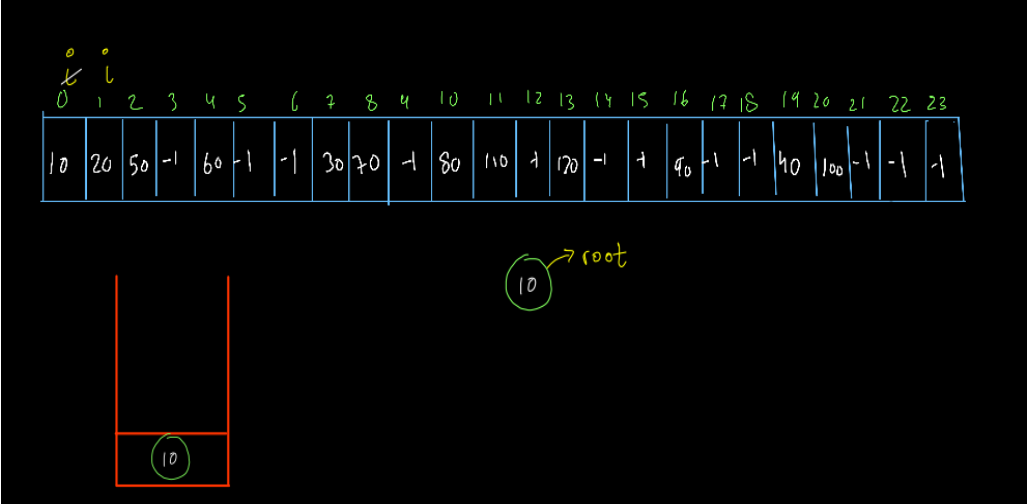 i i
0 1 2 3 4 5 6 7 8 9 10 11 12 13 14 15 16 17 18 19 20 21 22 23
10 20 50 -1 60 -1 -1 30 70 -1 80 110 -1 120 -1 -1 90 -1 -1 40 100 -1 -1 -1
root
10
10